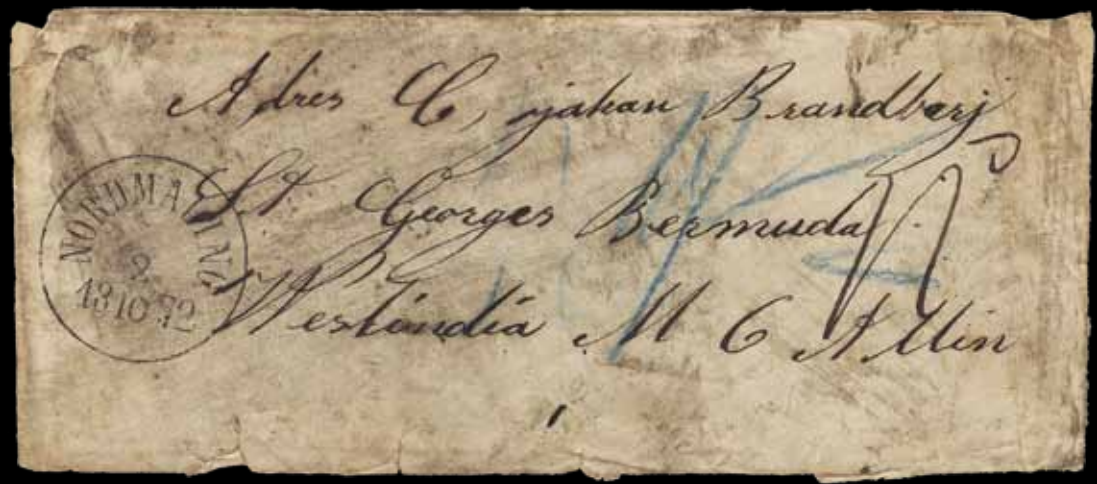 Adres C, jahan Brandbarj
St Georges Bermuda
Westindia M C Allin
NORDMALING
2
13 10 72